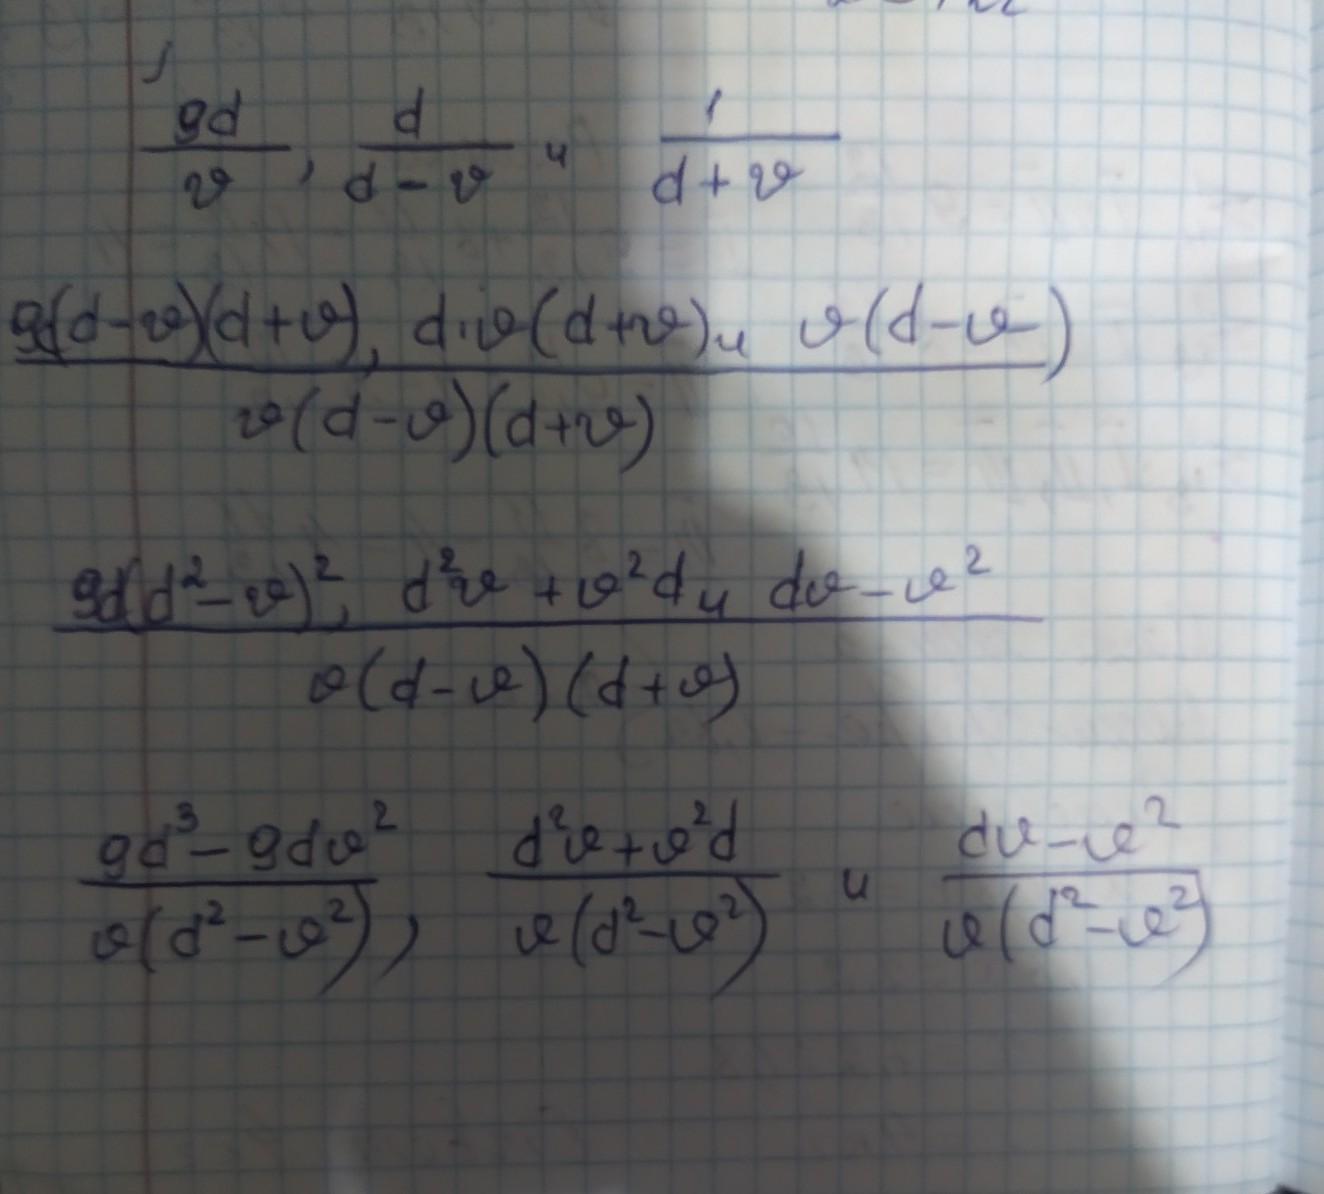 9d/v, d/(d-v) и 1/(d+v)
9d(d-v)(d+v), d·v(d+v) и v(d-v)
v(d-v)(d+v)
9d(d²-v)², d²v+v²d и dv-v²
v(d-v)(d+v)
9d³-9dv²/v(d²-v²), d²v+v²d/v(d²-v²) и dv-v²/v(d²-v²)